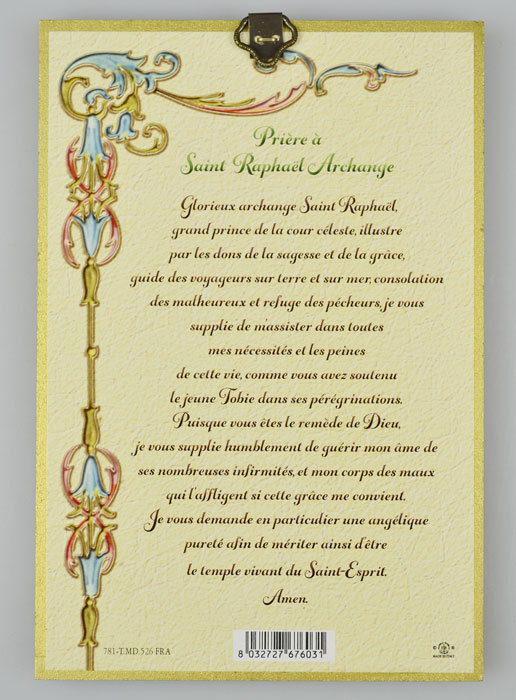 Prière à
Saint Raphaël Archange
Glorieux archange Saint Raphaël,
grand prince de la cour céleste, illustre
par les dons de la sagesse et de la grâce,
guide des voyageurs sur terre et sur mer, consolation
des malheureux et refuge des pécheurs, je vous
supplie de m'assister dans toutes
mes nécessités et les peines
de cette vie, comme vous avez soutenu
le jeune Tobie dans ses pérégrinations.
Puisque vous êtes le remède de Dieu,
je vous supplie humblement de guérir mon âme de
ses nombreuses infirmités, et mon corps des maux
qui l'affligent si cette grâce me convient.
Je vous demande en particulier une angélique
pureté afin de mériter ainsi d'être
le temple vivant du Saint-Esprit.
Amen.
781-T.MD.526 FRA
8 032727 676031
MADE IN ITALY